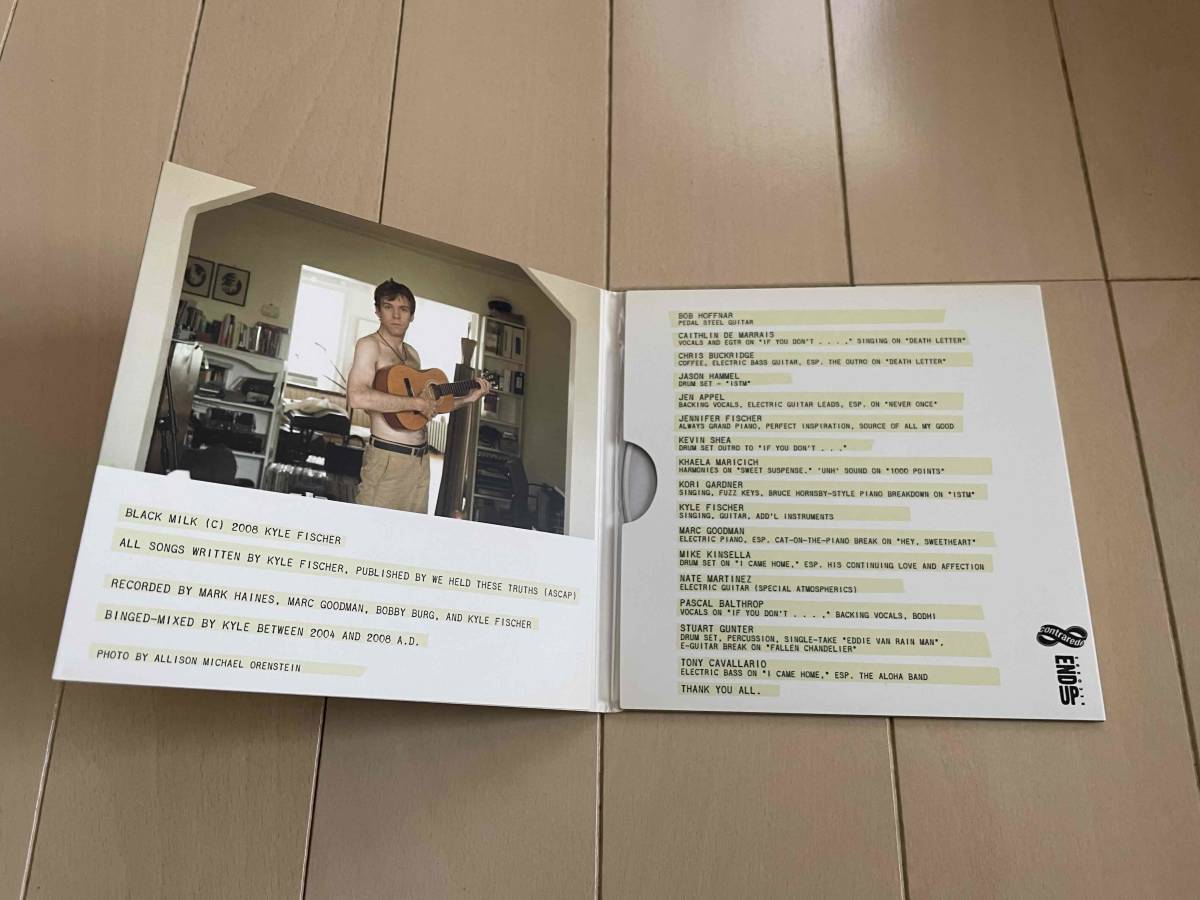 BLACK MILK (C) 2008 KYLE FISCHER
ALL SONGS WRITTEN BY KYLE FISCHER, PUBLISHED BY WE HELD THESE TRUTHS (ASCAP)
RECORDED BY MARK HAINES, MARC GOODMAN, BOBBY BURG, AND KYLE FISCHER
BINGED-MIXED BY KYLE BETWEEN 2004 AND 2008 A.D.
PHOTO BY ALLISON MICHAEL ORENSTEIN
BOB HOFFNAR
PEDAL STEEL GUITAR
CAITHLIN DE MARRAIS
VOCALS AND EGTR ON "IF YOU DON'T . . . ." SINGING ON "DEATH LETTER"
CHRIS BUCKRIDGE
COFFEE, ELECTRIC BASS GUITAR, ESP. THE OUTRO ON "DEATH LETTER"
JASON HAMMEL
DRUM SET - "ISTM"
JEN APPEL
BACKING VOCALS, ELECTRIC GUITAR LEADS, ESP. ON "NEVER ONCE"
JENNIFER FISCHER
ALWAYS GRAND PIANO, PERFECT INSPIRATION, SOURCE OF ALL MY GOOD
KEVIN SHEA
DRUM SET OUTRO TO "IF YOU DON'T . . ."
KHAELA MARICICH
HARMONIES ON "SWEET SUSPENSE." "UNH" SOUND ON "1000 POINTS"
KORI GARDNER
SINGING, FUZZ KEYS, BRUCE HORNSBY-STYLE PIANO BREAKDOWN ON "ISTM"
KYLE FISCHER
SINGING, GUITAR, ADD'L INSTRUMENTS
MARC GOODMAN
ELECTRIC PIANO, ESP. CAT-ON-THE-PIANO BREAK ON "HEY, SWEETHEART"
MIKE KINSELLA
DRUM SET ON "I CAME HOME," ESP. HIS CONTINUING LOVE AND AFFECTION
NATE MARTINEZ
ELECTRIC GUITAR (SPECIAL ATMOSPHERICS)
PASCAL BALTHROP
VOCALS ON "IF YOU DON'T . . . .," BACKING VOCALS, BODHI
STUART GUNTER
DRUM SET, PERCUSSION, SINGLE-TAKE "EDDIE VAN RAIN MAN",
E-GUITAR BREAK ON "FALLEN CHANDELIER"
TONY CAVALLARIO
ELECTRIC BASS ON "I CAME HOME," ESP. THE ALOHA BAND
THANK YOU ALL.
contrarede
END UP
RECORDS